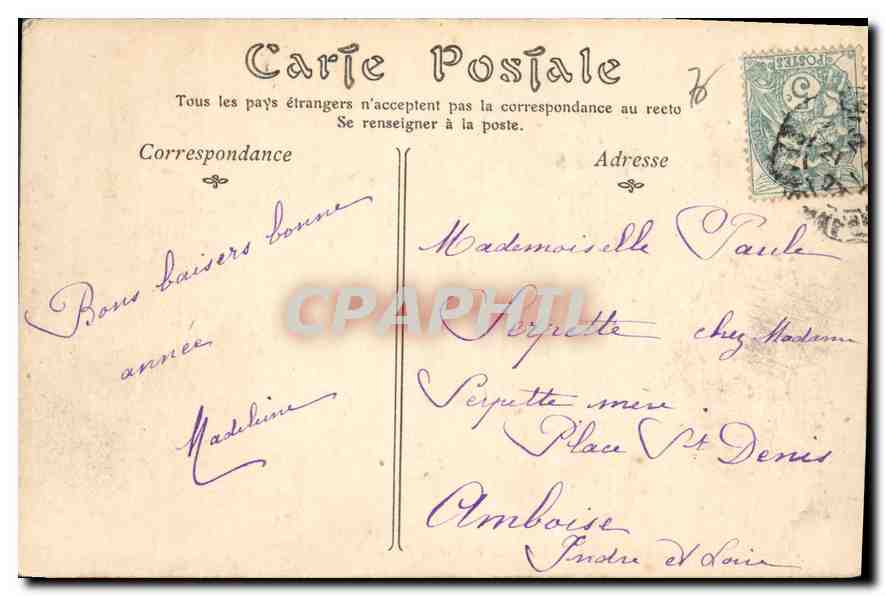 Carte Postale
Tous les pays étrangers n'acceptent pas la correspondance au recto
Se renseigner à la poste.
Correspondance
Adresse
76
POSTES
5
Bons baisers bonne
année
Madeleine
Mademoiselle Paule
Serpette chez Madame
Serpette mère
Place St Denis
Amboise
Indre et Loire
CPAPHIL